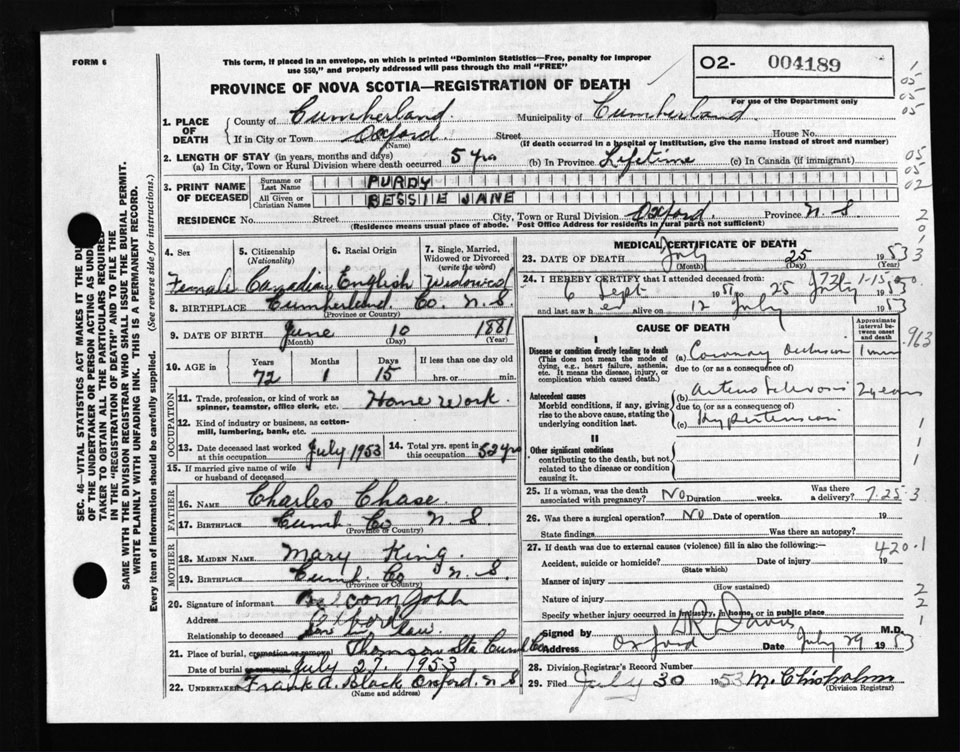 FORM 6
This form, if placed in an envelope, on which is printed "Dominion Statistics—Free, penalty for improper
use $50," and properly addressed will pass through the mail "FREE"
O2- 004189
For use of the Department only
PROVINCE OF NOVA SCOTIA—REGISTRATION OF DEATH
1. PLACE OF DEATH
County of Cumberland Municipality of Cumberland
If in City or Town Oxford Street House No.
(Name) (If death occurred in a hospital or institution, give the name instead of street and number)
2. LENGTH OF STAY (in years, months and days)
(a) In City, Town or Rural Division where death occurred 5 yrs (b) In Province Lifetime (c) In Canada (if immigrant)
3. PRINT NAME OF DECEASED
Surname or Last Name PURDY
All Given or Christian Names BESSIE JANE
RESIDENCE No. Street City, Town or Rural Division Oxford Province N. S
(Residence means usual place of abode. Post Office Address for residents in rural parts not sufficient)
4. Sex 5. Citizenship (Nationality) 6. Racial Origin 7. Single, Married, Widowed or Divorced (write the word)
Female Canadian English Widowed
8. BIRTHPLACE Cumberland Co. N. S.
(Province or Country)
9. DATE OF BIRTH June 10 1881
(Month) (Day) (Year)
10. AGE in Years Months Days If less than one day old
72 1 15 hrs. or min.
OCCUPATION
11. Trade, profession, or kind of work as spinner, teamster, office clerk, etc. Home Work
12. Kind of industry or business, as cotton-mill, lumbering, bank, etc.
13. Date deceased last worked at this occupation July 1953 14. Total yrs. spent in this occupation 52 yrs
15. If married give name of wife or husband of deceased
FATHER
16. NAME Charles Chase.
17. BIRTHPLACE Cumb. Co N. S.
(Province or Country)
MOTHER
18. MAIDEN NAME Mary King.
19. BIRTHPLACE Cumb. Co N. S.
(Province or Country)
20. Signature of informant
Address
Relationship to deceased Son in law
21. Place of burial, cremation or removal Thomson Sta Cumb Co
Date of burial or removal July 27. 1953
22. UNDERTAKER Frank A. Black Oxford. N S
(Name and address)
MEDICAL CERTIFICATE OF DEATH
23. DATE OF DEATH July 25 1953
(Month) (Day) (Year)
24. I HEREBY CERTIFY that I attended deceased from:
6 Sept 1951 to 25 July 1953
and last saw her alive on 12 July 1953
CAUSE OF DEATH
Approximate interval between onset and death
I
Disease or condition directly leading to death
(This does not mean the mode of dying, e.g., heart failure, asthenia, etc. It means the disease, injury, or complication which caused death.
(a) Coronary Occlusion 1 min
due to (or as a consequence of)
Antecedent causes
Morbid conditions, if any, giving rise to the above cause, stating the underlying condition last.
(b) 2 years
due to (or as a consequence of)
(c) Hypertension
II
Other significant conditions
contributing to the death, but not related to the disease or condition causing it.
25. If a woman, was the death associated with pregnancy? No Duration weeks. Was there a delivery?
7.25.3
26. Was there a surgical operation? NO Date of operation 19
State findings Was there an autopsy?
27. If death was due to external causes (violence) fill in also the following:—
420.1
Accident, suicide or homicide? Date of injury 19
(State which)
Manner of injury
(How sustained)
Nature of injury
Specify whether injury occurred in industry, in home, or in public place
Signed by Davis M.D.
Address Oxford Date July 29 1953
28. Division Registrar's Record Number
29. Filed July 30 1953 M. Chisholm
(Division Registrar)
SEC. 46—VITAL STATISTICS ACT MAKES IT THE DU
OF THE UNDERTAKER OR PERSON ACTING AS UND
TAKER TO OBTAIN ALL THE PARTICULARS REQUIRED
IN THE "REGISTRATION OF DEATH" AND TO FILE THE
SAME WITH THE DIVISION REGISTRAR WHO SHALL ISSUE THE BURIAL PERMIT.
WRITE PLAINLY WITH UNFADING INK. THIS IS A PERMANENT RECORD.
Every item of information should be carefully supplied. (See reverse side for instructions.)